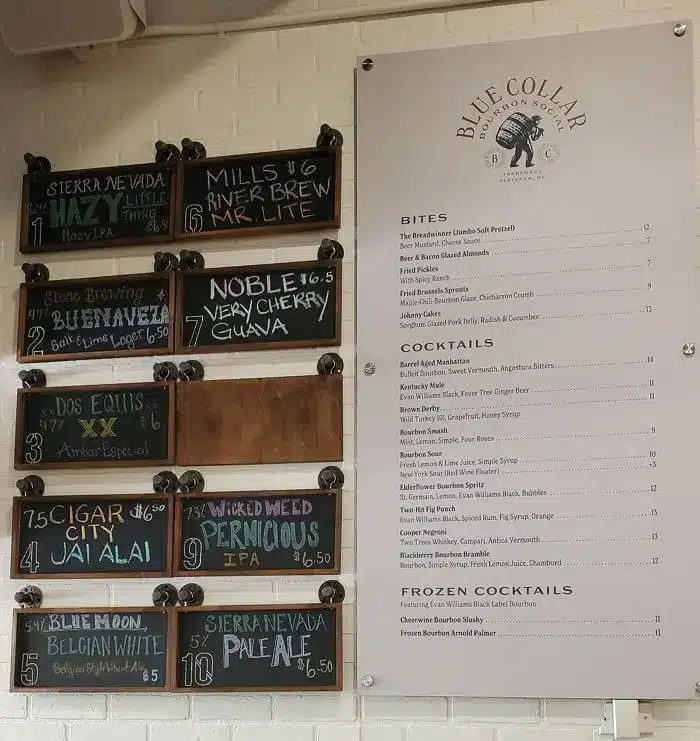 SIERRA NEVADA
HAZY LITTLE
THING
1 Hazy IPA
MILLS $6
RIVER BREW
6 MR. LITE
Stone Brewing
4.7% BUENAVEZA
2 Salt & Lime Lager 6.50
NOBLE $6.5
VERY CHERRY
7 GUAVA
XX DOS EQUIS XX
4.7% XX $6
3 Ambar Especial
7.5 CIGAR $6.50
CITY
4 JAI ALAI
7.3% WICKED WEED
PERNICIOUS
9 IPA $6.50
5.4% BLUE MOON
BELGIAN WHITE
5 Belgian Style Wheat Ale $5
SIERRA NEVADA
5% PALE ALE
10 $6.50
BLUE COLLAR
BOURBON SOCIAL
B C
TRADEMARK
FLETCHER, NC
BITES
The Breadwinner (Jumbo Soft Pretzel) 12
Beer Mustard, Cheese Sauce
Beer & Bacon Glazed Almonds 7
Fried Pickles 7
With Spicy Ranch
Fried Brussels Sprouts 9
Maple-Chili-Bourbon Glaze, Chicharrón Crumb
Johnny Cakes 13
Sorghum Glazed Pork Belly, Radish & Cucumber
COCKTAILS
Barrel Aged Manhattan 14
Bulleit Bourbon, Sweet Vermouth, Angostura Bitters
Kentucky Mule 11
Evan Williams Black, Fever Tree Ginger Beer
Brown Derby 11
Wild Turkey 101, Grapefruit, Honey Syrup
Bourbon Smash 9
Mint, Lemon, Simple, Four Roses
Bourbon Sour 10
Fresh Lemon & Lime Juice, Simple Syrup
New York Sour (Red Wine Floater) +3
Elderflower Bourbon Spritz 12
St. Germain, Lemon, Evan Williams Black, Bubbles
Two-Hit Fig Punch 13
Evan Williams Black, Spiced Rum, Fig Syrup, Orange
Cooper Negroni 13
Two Trees Whiskey, Campari, Antica Vermouth
Blackberry Bourbon Bramble 12
Bourbon, Simple Syrup, Fresh Lemon Juice, Chambord
FROZEN COCKTAILS
Featuring Evan Williams Black Label Bourbon
Cheerwine Bourbon Slushy 11
Frozen Bourbon Arnold Palmer 11